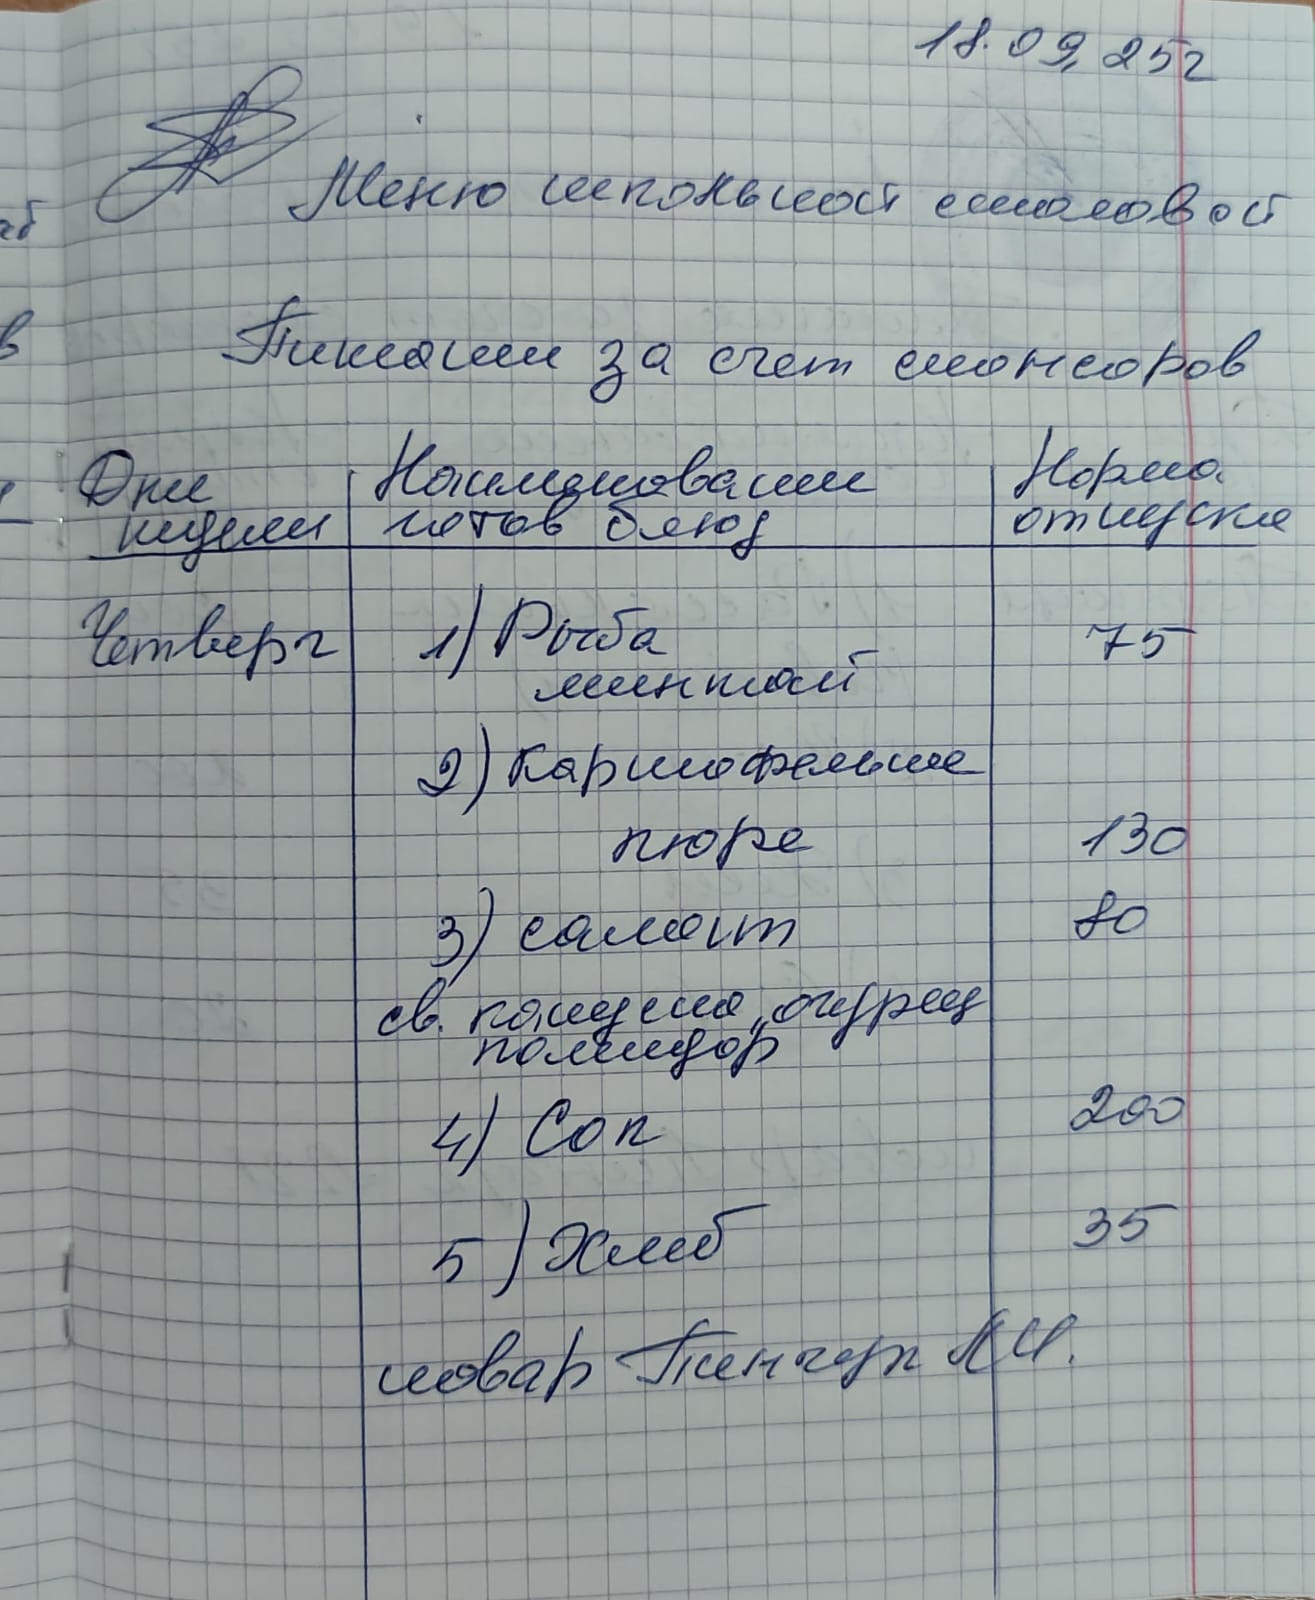 18.09.25г
Меню школьной столовой
Питание за счет спонсоров
Дни недели
Наименование готов блюд
Норма отпуска
Четверг
1) Рыба 75
минтай
2) Картофельное
пюре 130
3) салат 80
св. капуста, огурец
помидор
4) Сок 200
5) Хлеб 35
повар Пинчук